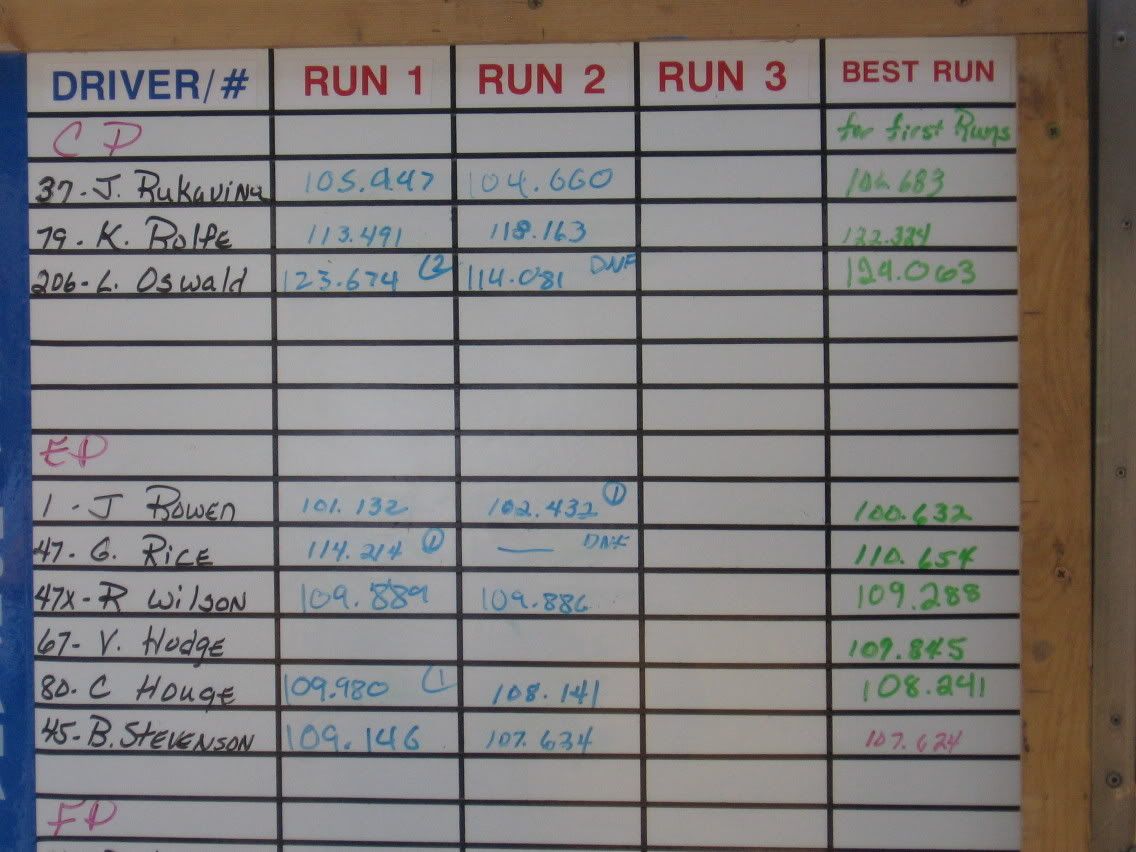 DRIVER/# RUN 1 RUN 2 RUN 3 BEST RUN
CP for first Runs
37-J. Rukavina 105.947 104.660 106.683
79. K. Rolfe 113.491 118.163 122.324
206-L. Oswald 123.674 (2 114.081 DNF 124.063
EP
1-J Rowen 101.132 102.432 (1) 100.632
47-G. Rice 114.214 (1) — DNF 110.654
47X-R Wilson 109.889 109.886 109.288
67-V. Hodge 109.845
80. C Houge 109.980 (1 108.141 108.241
45-B. Stevenson 109.146 107.634 107.624
FP